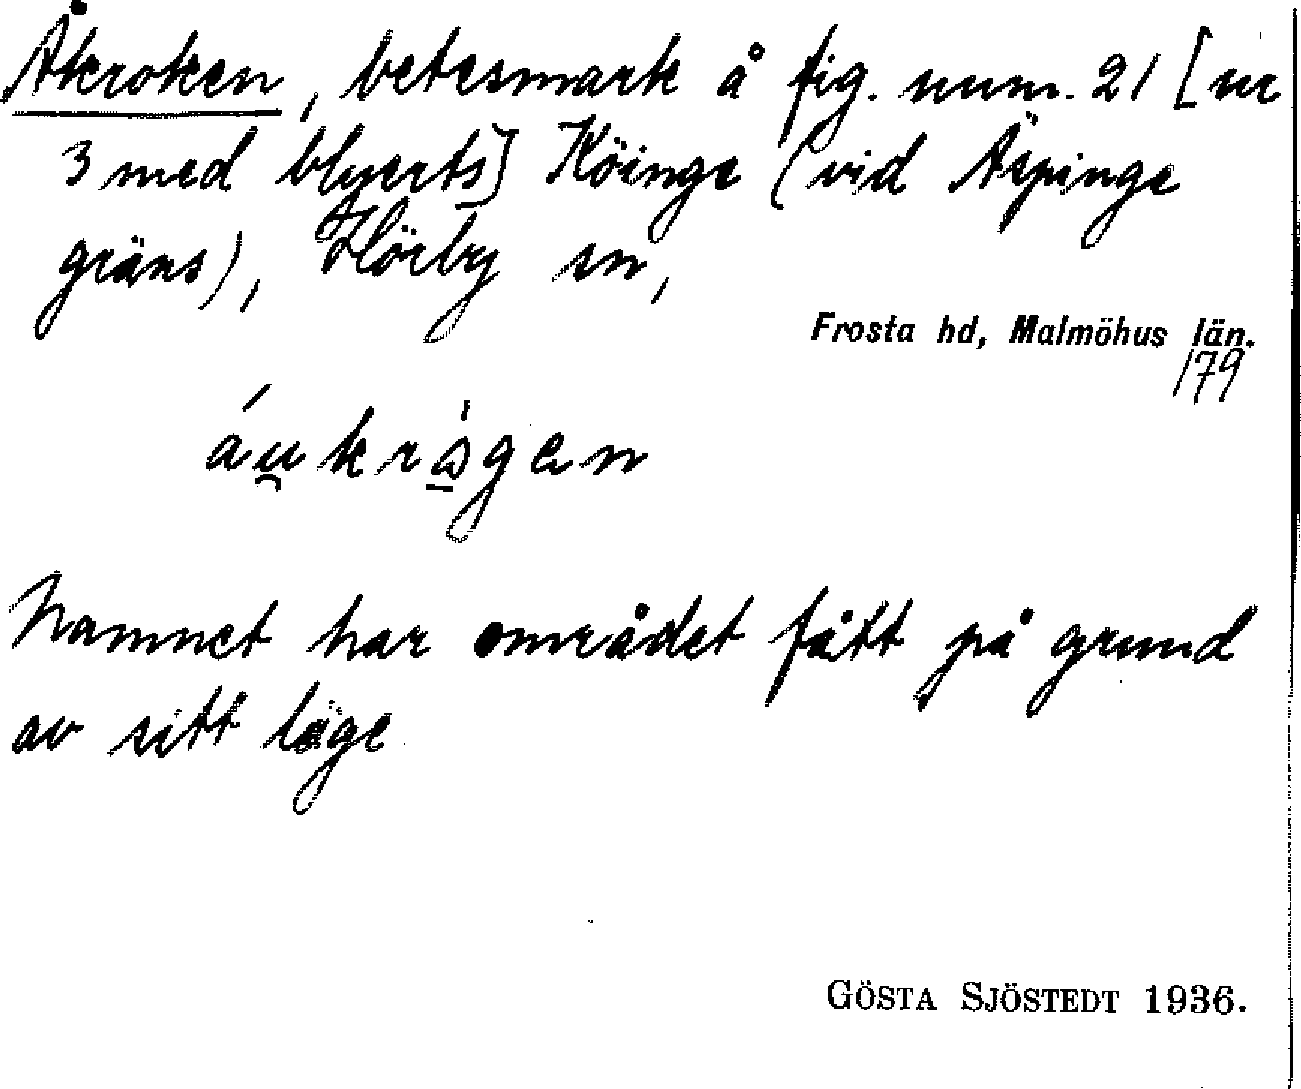 Åkroken, betesmark å fig. num. 21 [nr
3 med blyerts] Köinge (vid Äspinge
gräns), Hörby sn,
Frosta hd, Malmöhus län.
179
áu̯krågen
Namnet har området fått på grund
av sitt läge
GÖSTA SJÖSTEDT 1936.